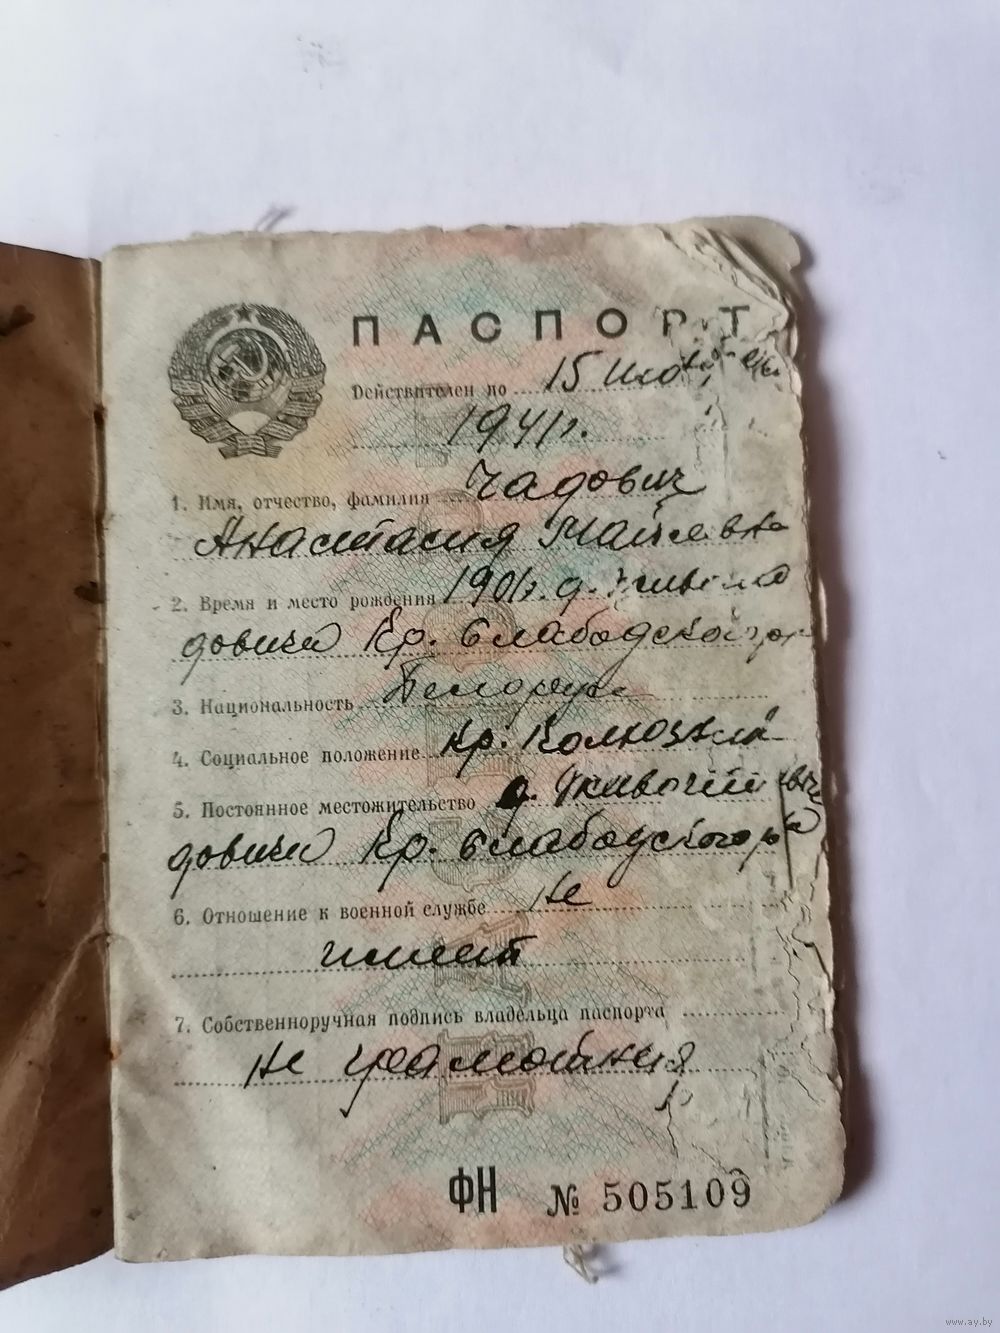 ПАСПОРТ
Действителен по 15
1941 г.
1. Имя, отчество, фамилия Чадович
Анастасия
2. Время и место рождения 1901 г. д.
довичи Кр. Слабодского
3. Национальность
4. Социальное положение Кр.
5. Постоянное местожительство д.
довичи Кр. Слабодского
6. Отношение к военной службе не
имеет
7. Собственноручная подпись владельца паспорта
не грамотная
ФН № 505109
www.ay.by